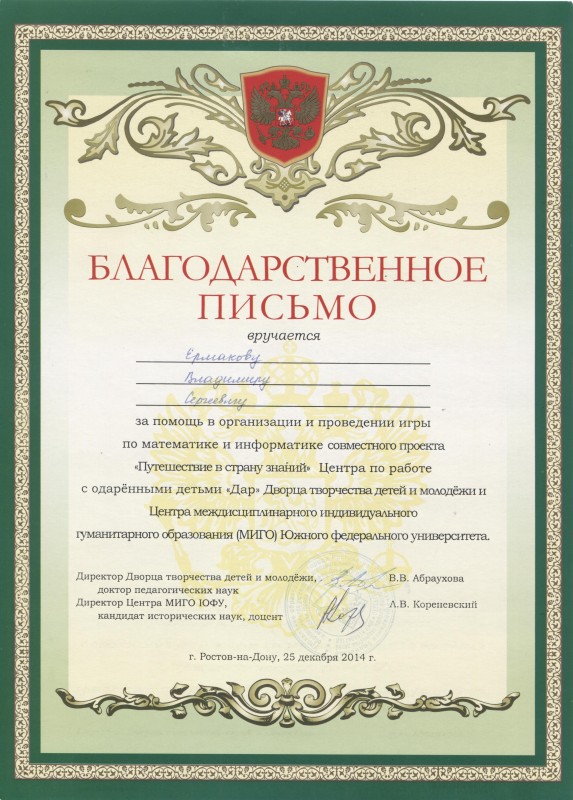 БЛАГОДАРСТВЕННОЕ
ПИСЬМО
вручается
Ермакову
Владимиру
Сергеевичу
за помощь в организации и проведении игры
по математике и информатике совместного проекта
«Путешествие в страну знаний» Центра по работе
с одарёнными детьми «Дар» Дворца творчества детей и молодёжи и
Центра междисциплинарного индивидуального
гуманитарного образования (МИГО) Южного федерального университета.
Директор Дворца творчества детей и молодёжи, В.В. Абраухова
доктор педагогических наук
Директор Центра МИГО ЮФУ, А.В. Кореневский
кандидат исторических наук, доцент
г. Ростов-на-Дону, 25 декабря 2014 г.